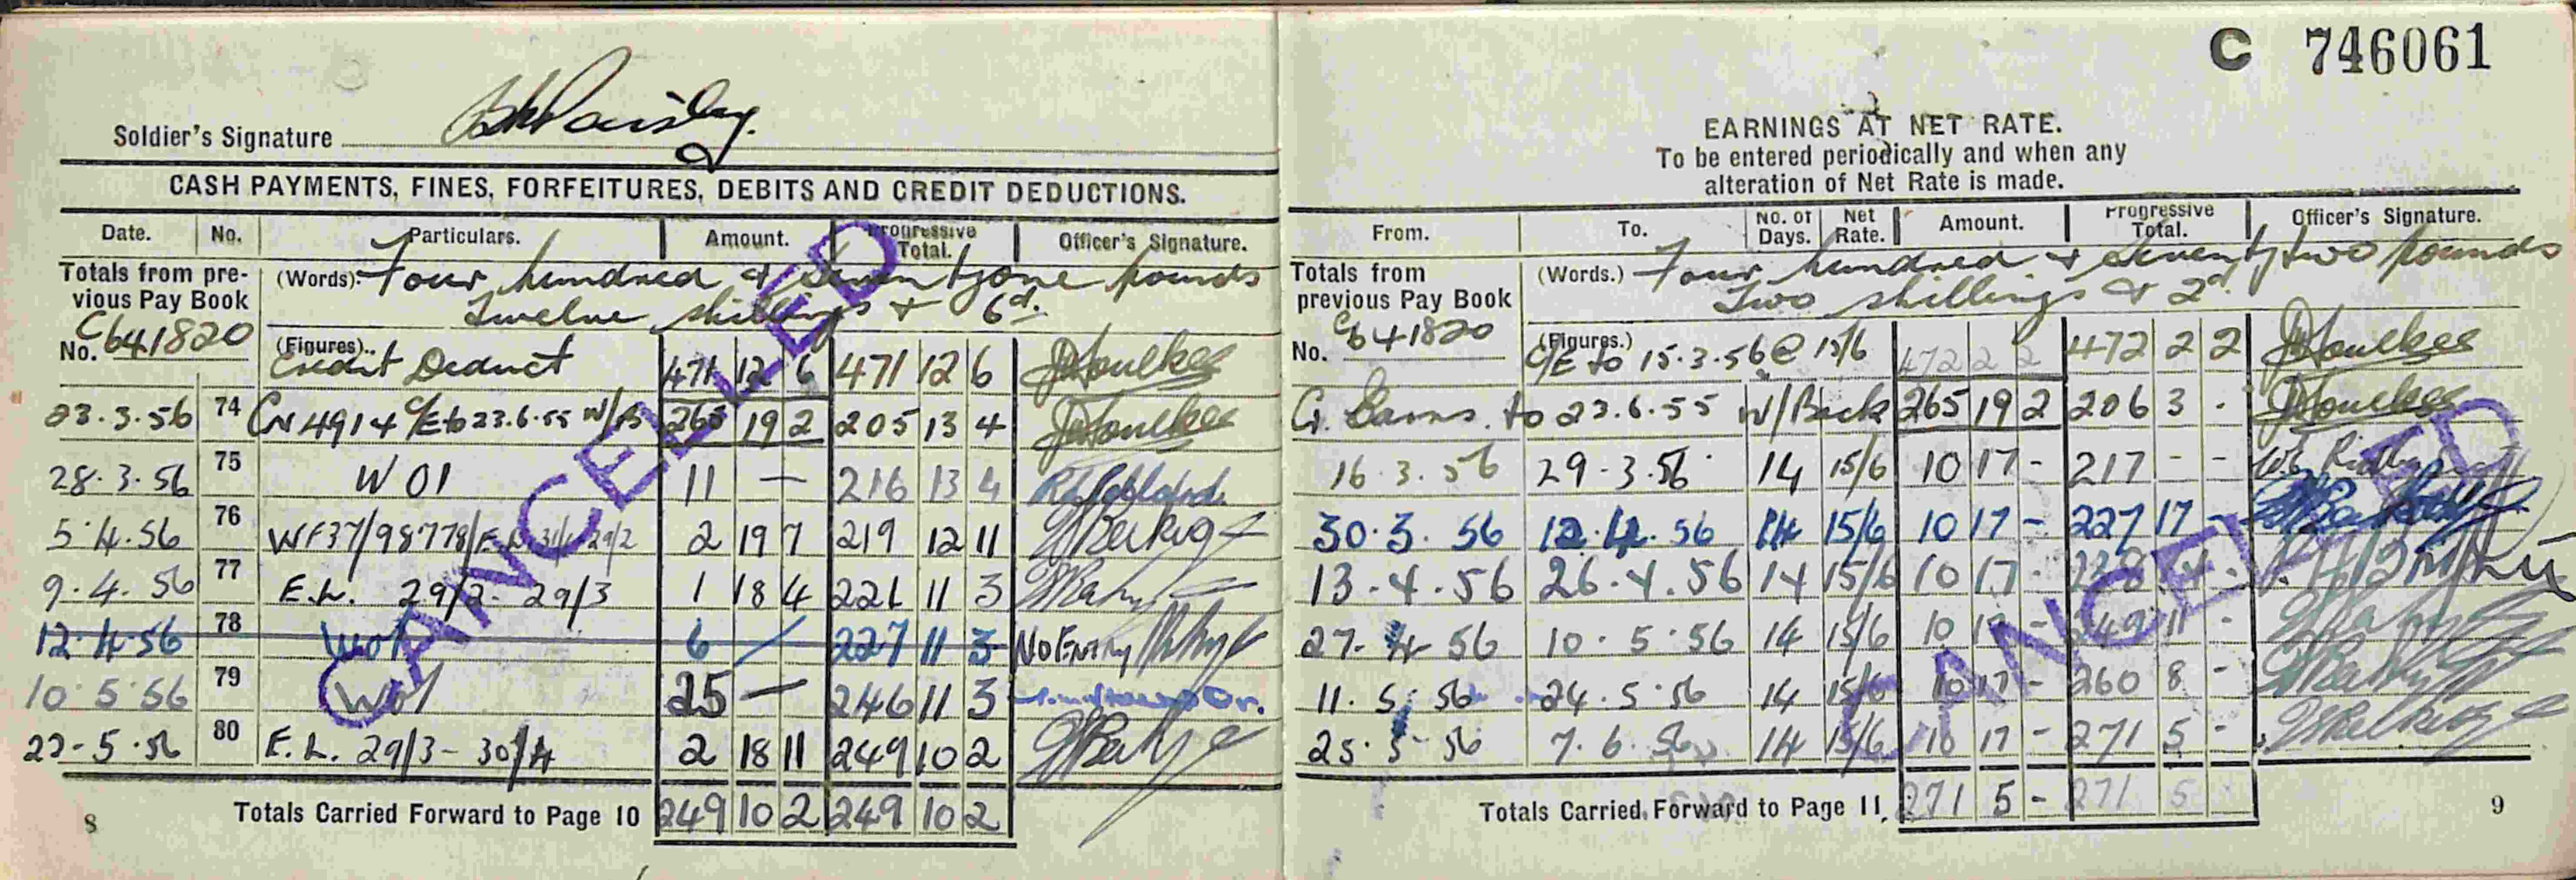 C 746061
Soldier's Signature
CASH PAYMENTS, FINES, FORFEITURES, DEBITS AND CREDIT DEDUCTIONS.
Date. No. Particulars. Amount. Progressive Total. Officer's Signature.
Totals from previous Pay Book No. C641820
(Words). Four hundred & seventyone pounds
Twelve shillings & 6d.
(Figures). Credit Deduct 471 12 6 471 12 6 J Foulkes
23.3.56 74 CN 4914 C/E to 23.6.55 W/B 265 19 2 205 13 4 J Foulkes
28.3.56 75 W01 11 — 216 13 4
5.4.56 76 WF37/98778/ 2 19 7 219 12 11
9.4.56 77 E.L. 29/2 - 29/3 1 18 4 221 11 3
12.4.56 78 W01 6 / 227 11 3 No Entry
10.5.56 79 W01 25 — 246 11 3
22-5.56 80 E.L. 29/3 - 30/4 2 18 11 249 10 2
Totals Carried Forward to Page 10 249 10 2 249 10 2
8
CANCELLED
EARNINGS AT NET RATE.
To be entered periodically and when any
alteration of Net Rate is made.
From. To. No. of Days. Net Rate. Amount. Progressive Total. Officer's Signature.
Totals from previous Pay Book No. C641820
(Words.) Four hundred & seventy two pounds
Two shillings & 2d.
(Figures.) C/E to 15.3.56 @ 15/6 472 2 2 472 2 2 J Foulkes
to 23.6.55 W/Back 265 19 2 206 3 . J Foulkes
16.3.56 29.3.56 14 15/6 10 17 - 217 - -
30.3.56 12.4.56 14 15/6 10 17 - 227 17 -
13.4.56 26.4.56 14 15/6 10 17 -
27.4.56 10.5.56 14 15/6 10 17 - 11 -
11.5.56 24.5.56 14 15/6 10 17 - 260 8 -
25.5.56 7.6.56 14 15/6 10 17 - 271 5 -
Totals Carried Forward to Page 11. 271 5 - 271 5
9
CANCELLED